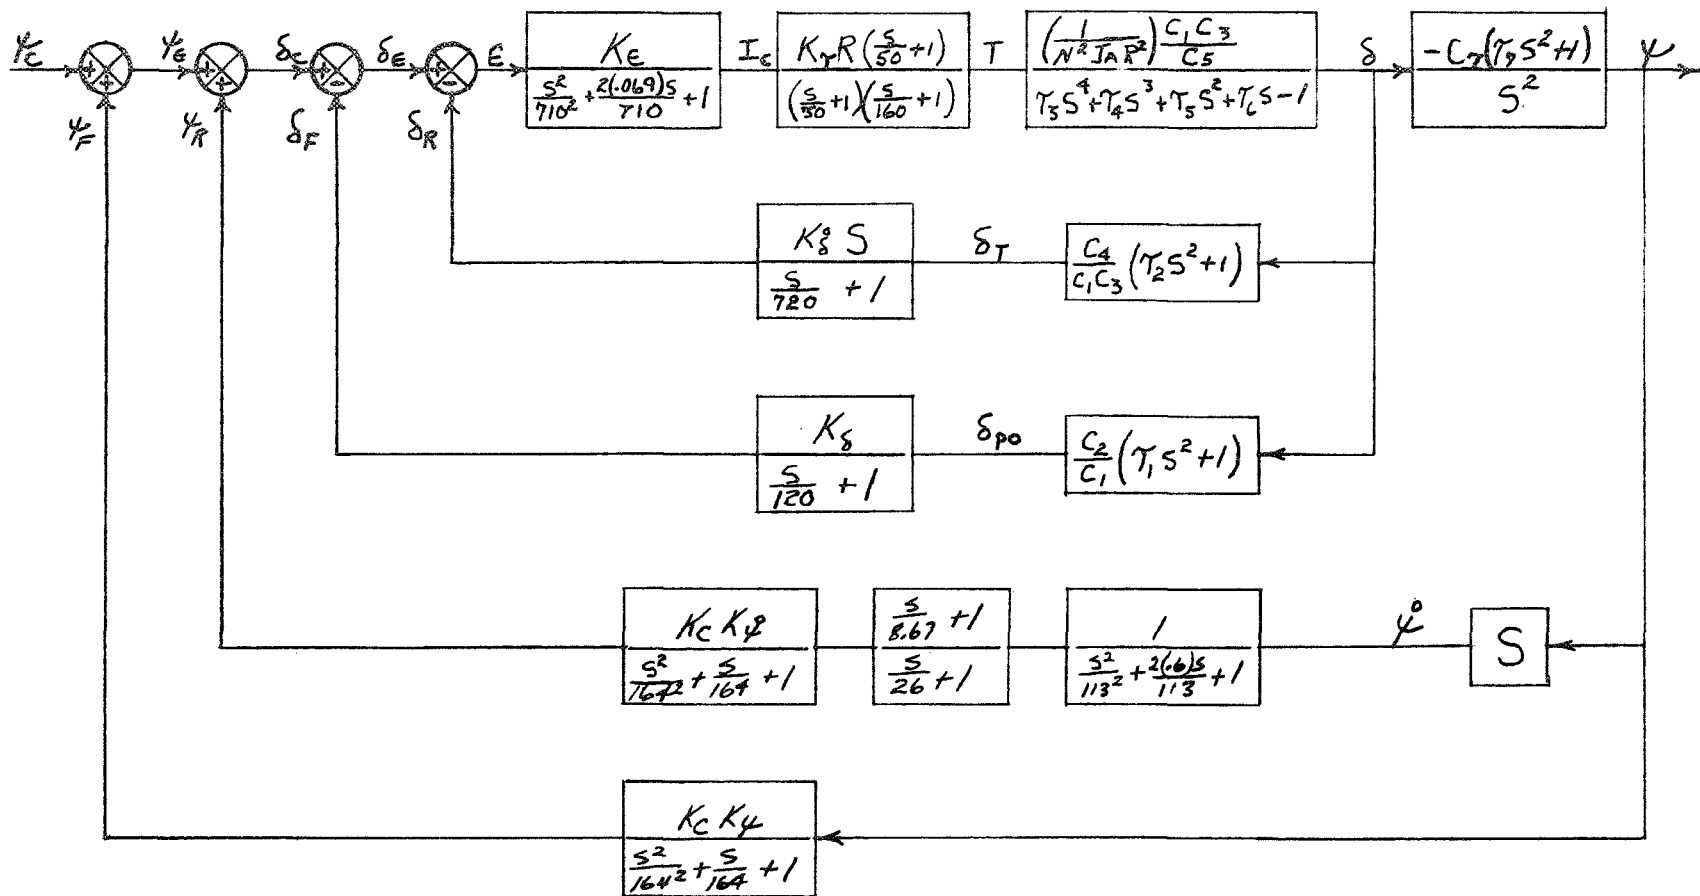 ψ_c ψ_ε δ_c δ_ε ε
+ + + + + - + -
ψ_F ψ_R δ_F δ_R
K_ε
s²/710² + 2(.069)s/710 + 1
I_c
K_τ R (s/50 + 1)
(s/30 + 1)(s/160 + 1)
T
(1/N² J_A R²) C₁C₃/C₅
τ₃s⁴ + τ₄s³ + τ₅s² + τ₆s - 1
δ
-C₇(τ₇s² + 1)
s²
ψ
K_δ̊ S
s/720 + 1
δ_T
C₄/C₁C₃ (τ₂s² + 1)
K_δ
s/120 + 1
δ_po
C₂/C₁ (τ₁s² + 1)
K_c K_ψ̊
s²/164² + s/164 + 1
s/8.67 + 1
s/26 + 1
1
s²/113² + 2(.6)s/113 + 1
ψ̊
S
K_c K_ψ
s²/164² + s/164 + 1